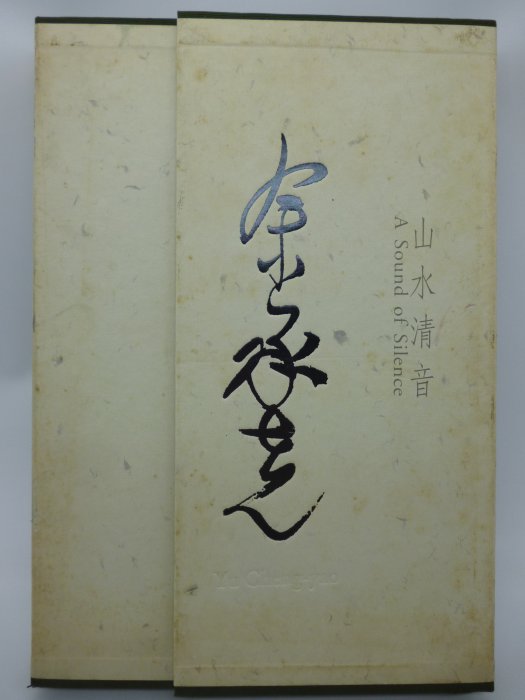 山水清音
A Sound of Silence
余承堯
Yu Cheng-yao